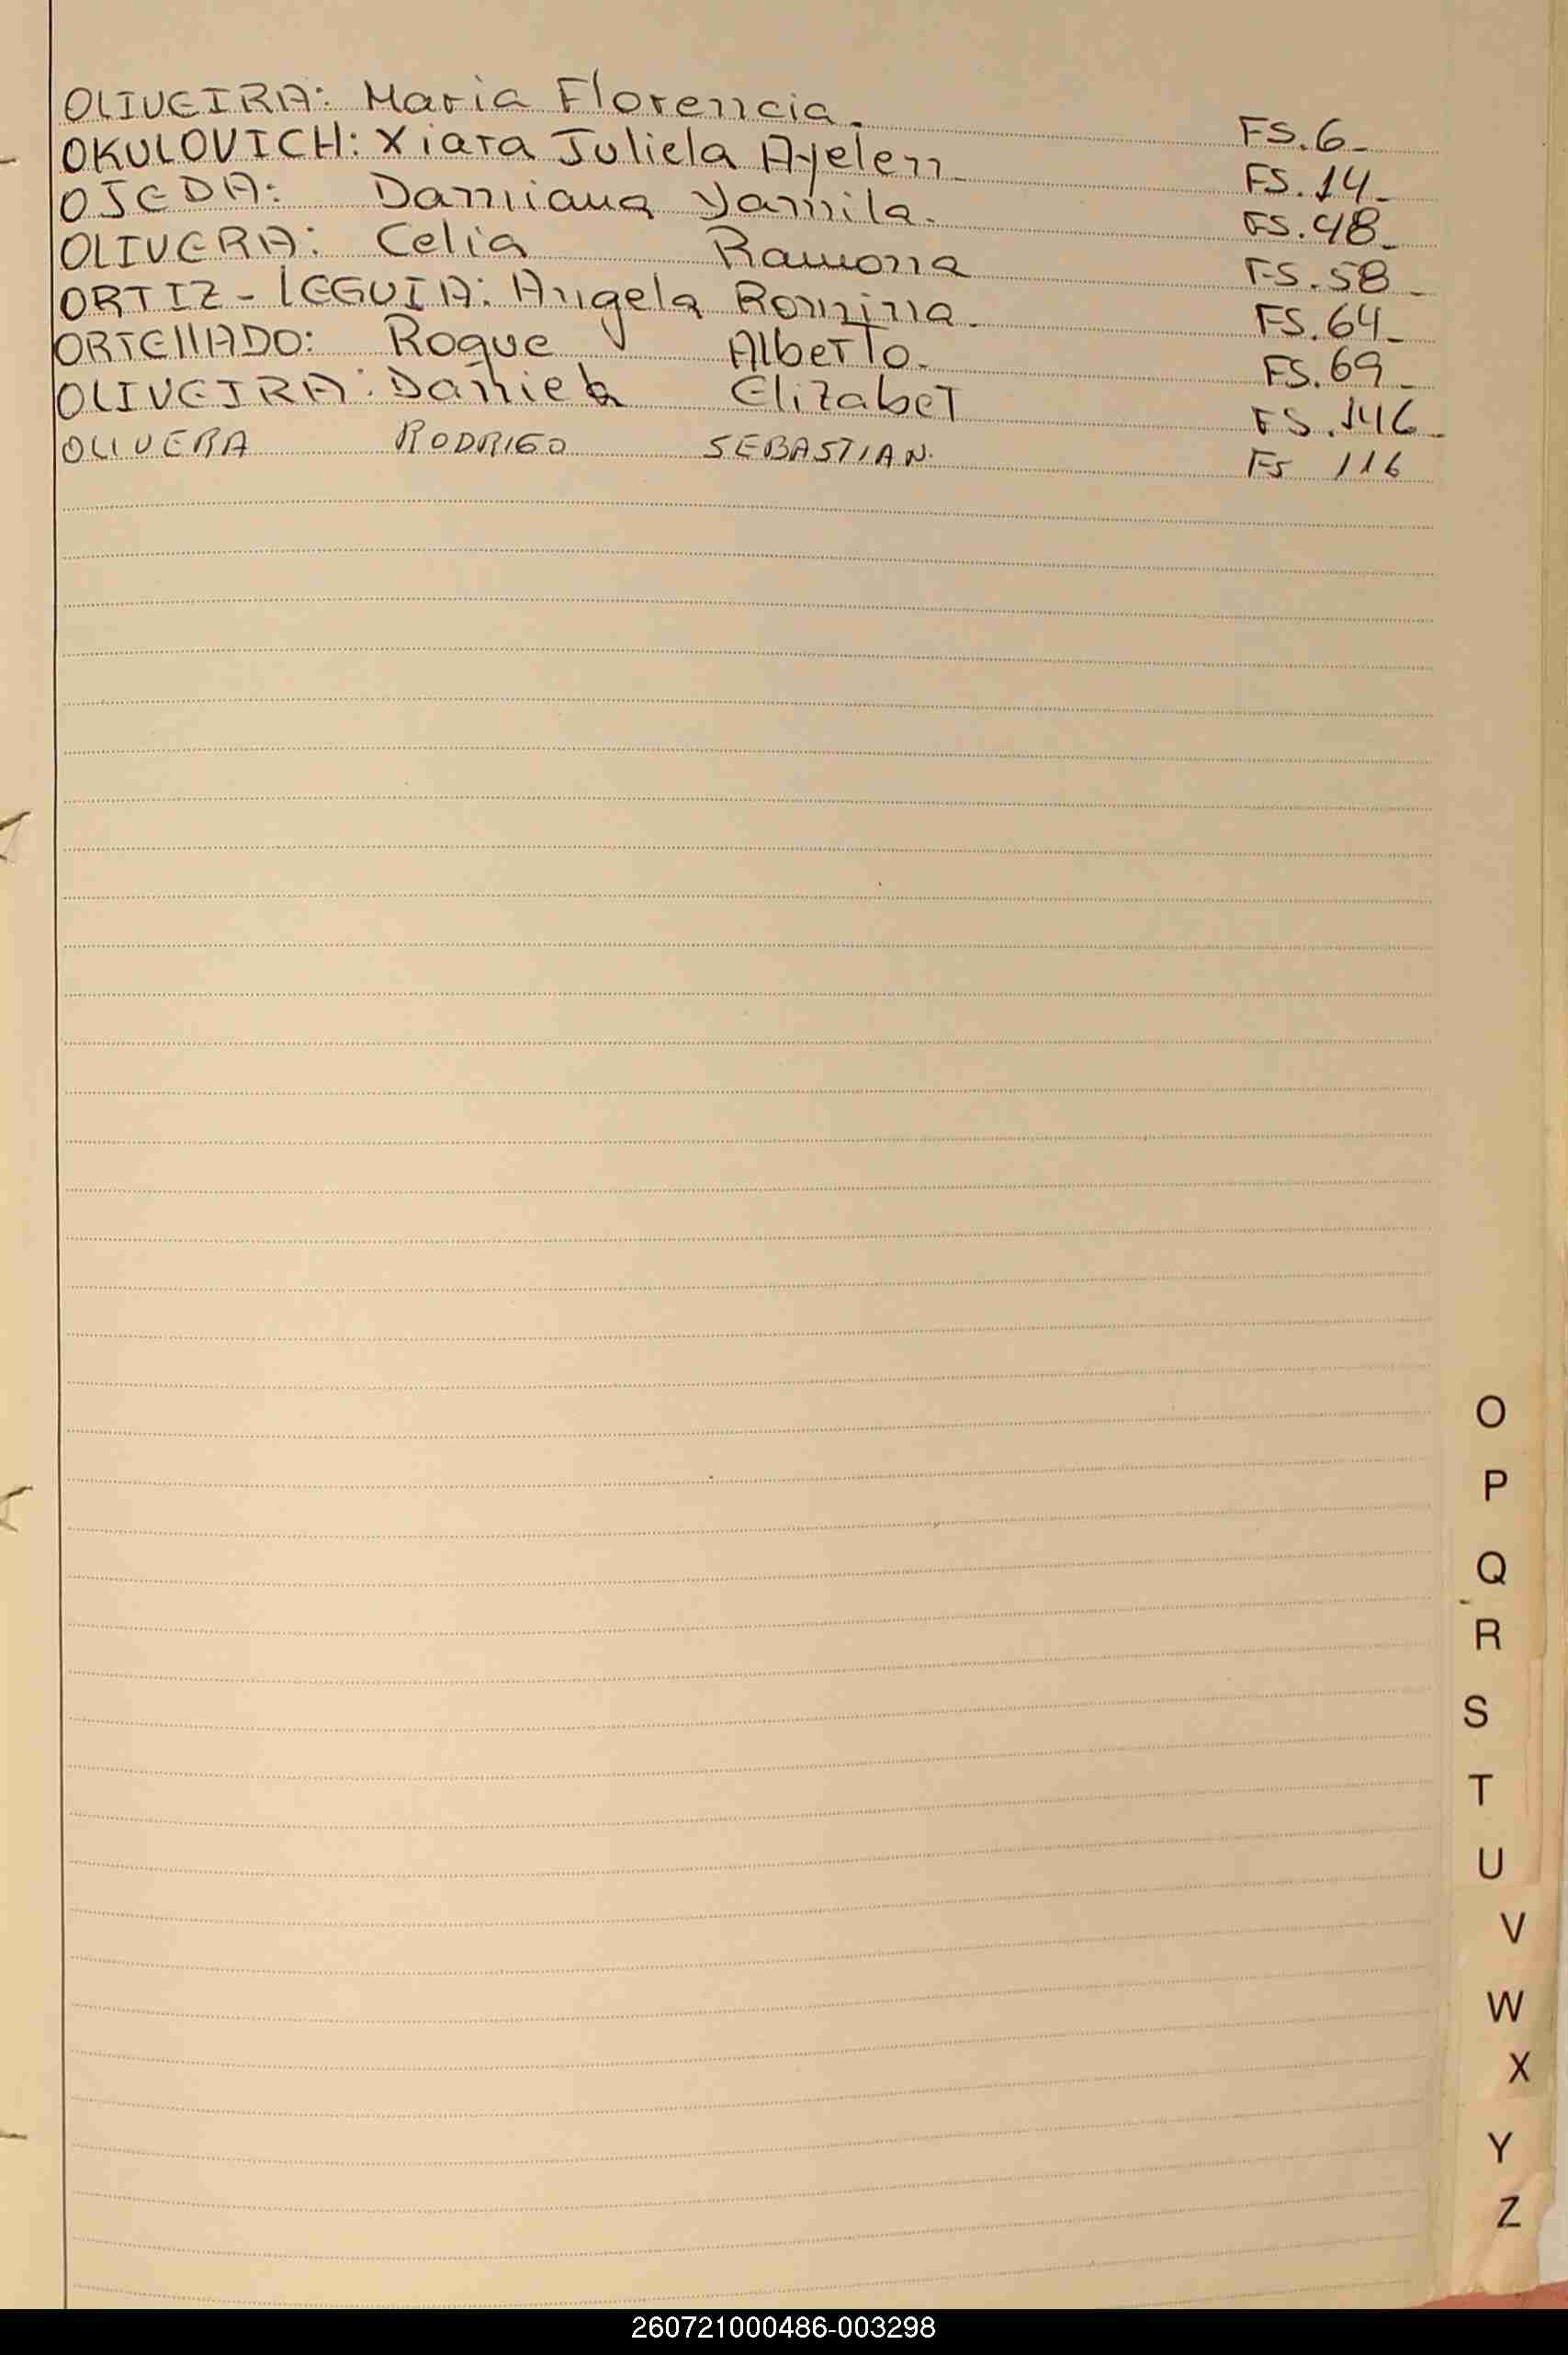 OLIVEIRA: Maria Florencia. FS.6-
OKULOVICH: Xiara Juliela Ayelen. FS.14-
OJEDA: Damiana Yamila. FS.48-
OLIVERA: Celia Ramona FS.58-
ORTIZ-LEGUIA: Angela Romina. FS.64-
ORTELLADO: Roque Alberto. FS.69-
OLIVEIRA: Daniela Elizabet FS.146-
OLIVERA RODRIGO SEBASTIAN. FS 116
O
P
Q
R
S
T
U
V
W
X
Y
Z
260721000486-003298